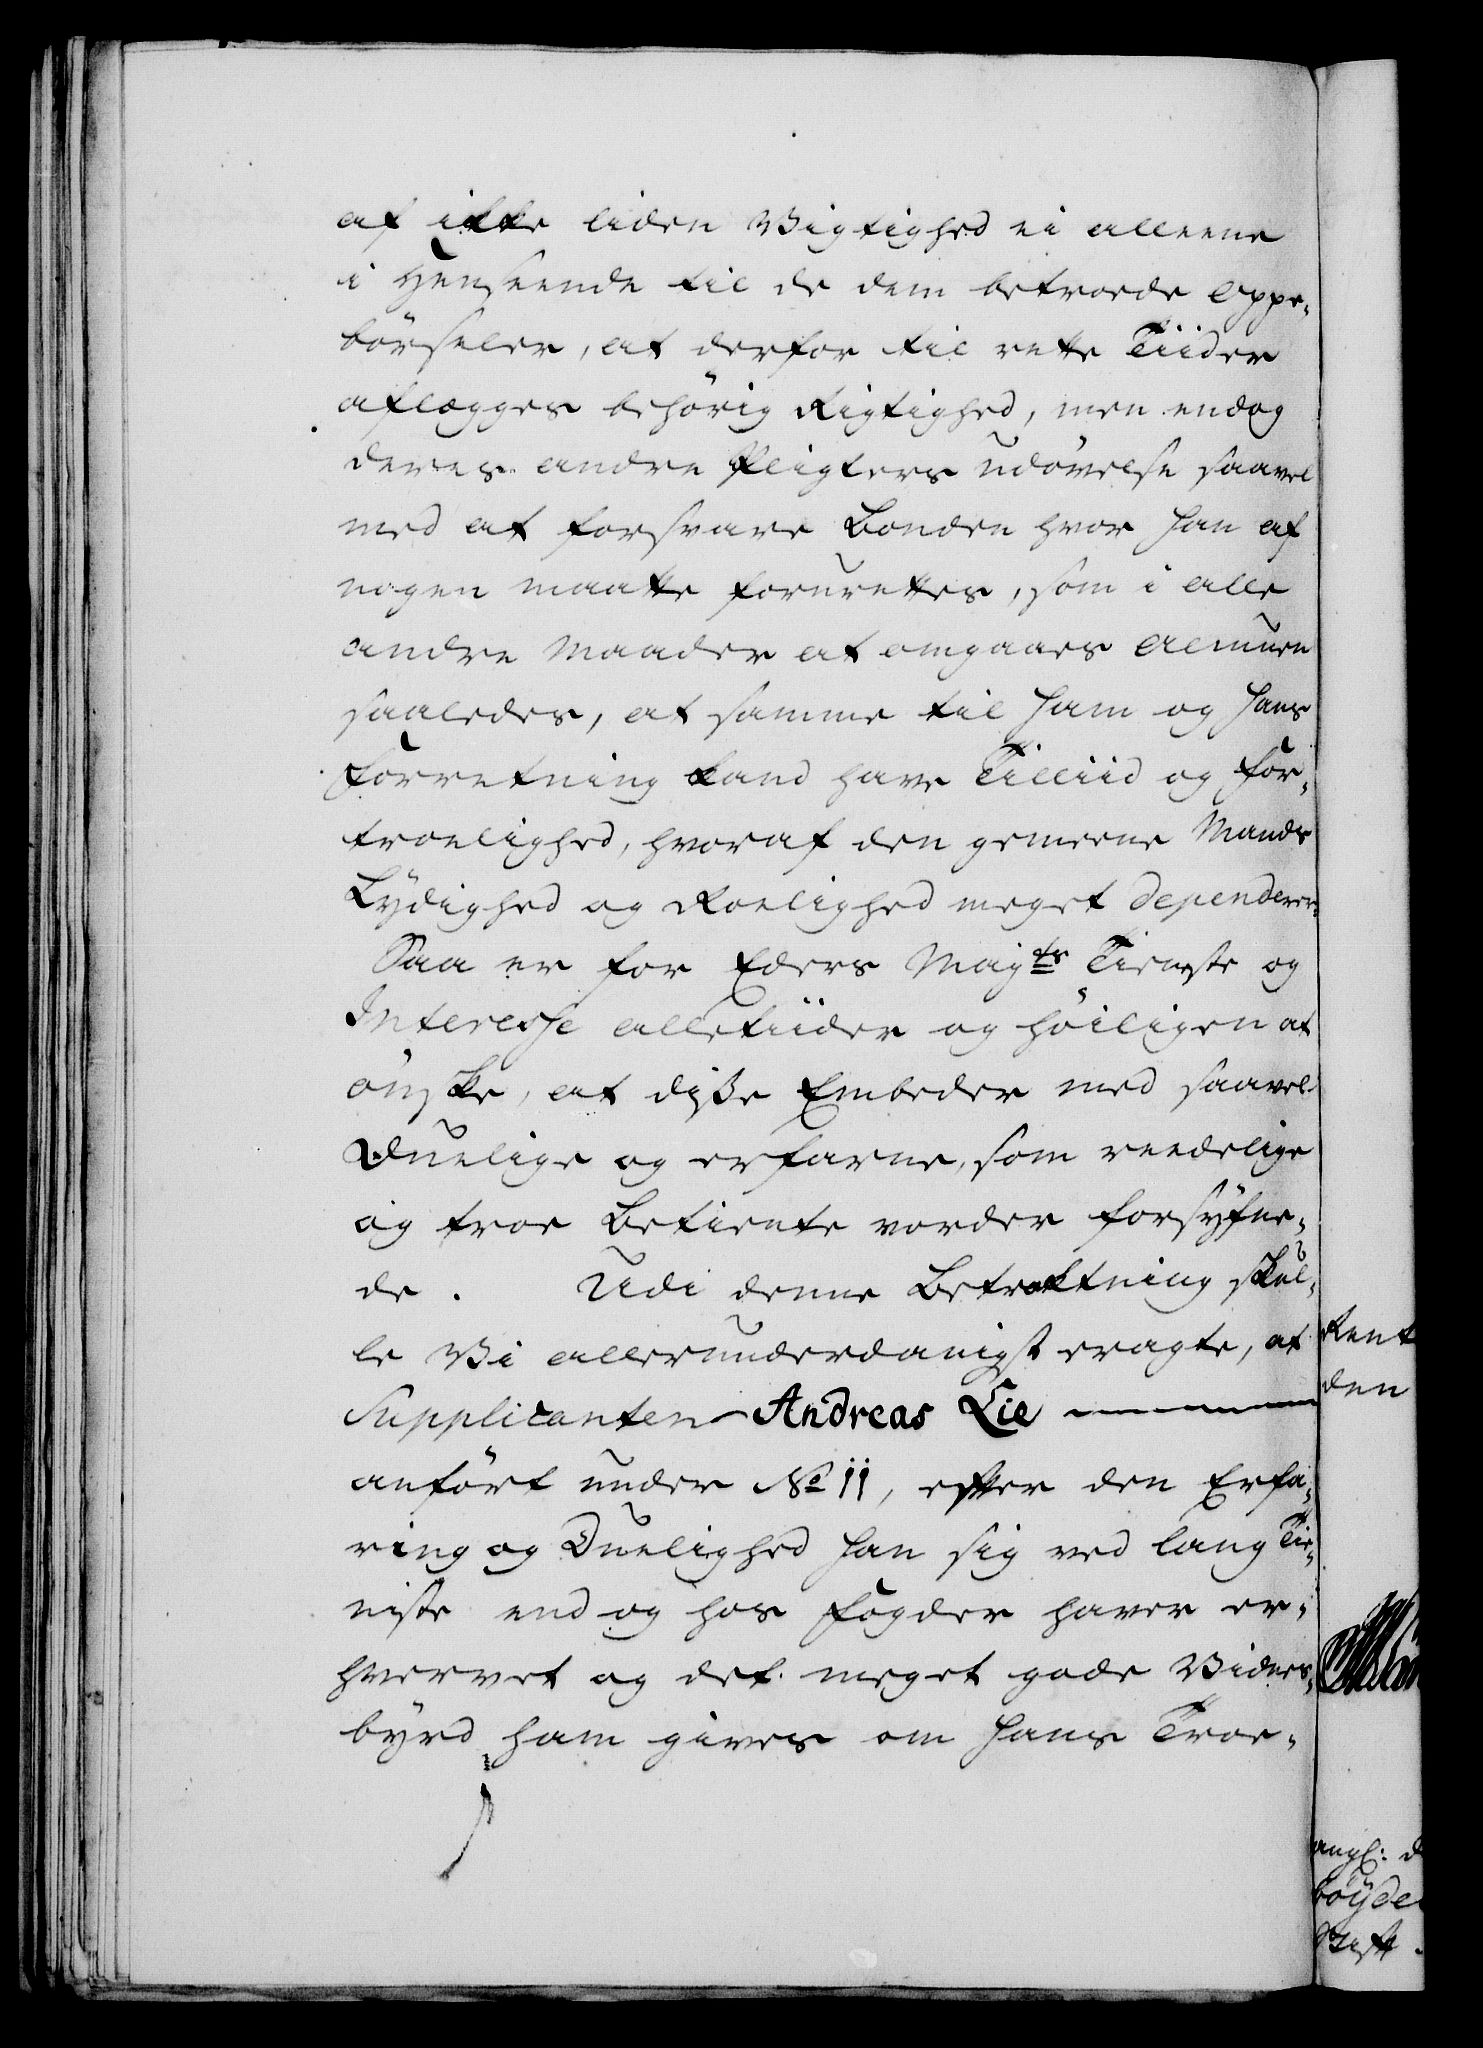 af ikke liden Vigtighed ei alleene
i Henseende til de dem betroede Oppe-
börseler, at derfor til rette Tiider
aflægges behörig Rigtighed, men endog
deres andre Pligters udövelse saavel
med at forsvare Bonden hvor han af
nogen maatte forurettes, som i alle
andre Maader at omgaaes Almuen
saaledes, at samme til ham og hans
Forretning kand have Tilliid og For-
troelighed, hvoraf den gemeene Mands
Lydighed og Roelighed meget dependerer.
Saa er for Eders Mayts Tieneste og
Interesse alletiider og höiligen at
önske, at diße Embeder med saavel
Duelige og erfarne, som reedelige
og troe Betiente vorder forsÿne-
de. Udi denne Betraktning skul-
le Vi allerunderdanigst eragte, at
Supplicanten Andreas Lie
anfört under No 11, efter den Erfa-
ring og Duelighed han sig ved lang Tie-
niste end og hos Fogder haver er-
hvervet og det meget gode Vidnes-
byrd ham gives om hans Troe-
Rent
den
böyde